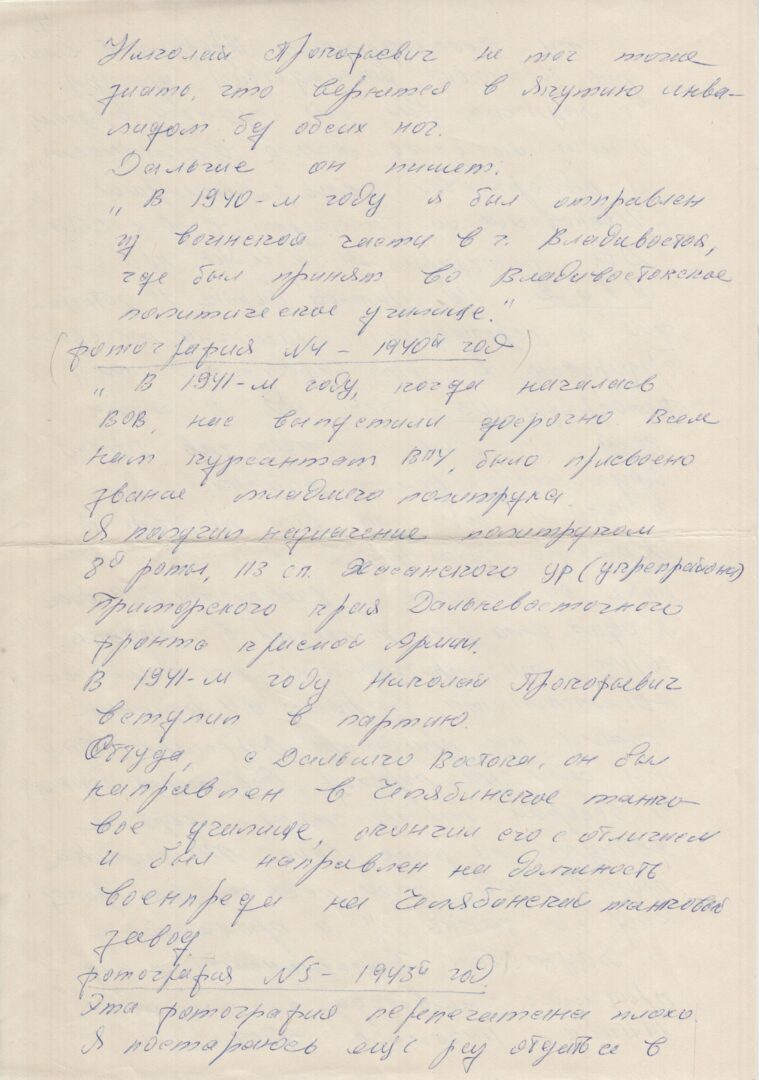 Николай Прокофьевич не мог тогда
знать, что вернется в Якутию инва-
лидом без обеих ног.
Дальше он пишет:
„В 1940-м году я был отправлен
из воинской части в г. Владивосток,
где был принят во Владивостокское
политическое училище."
(фотография №4 - 1940й год)
„В 1941-м году, когда началась
ВОВ, нас выпустили досрочно. Всем
нам курсантам ВПУ, было присвоено
звание младшего политрука
Я получил назначение политруком
8й роты, 113 сп. Хасанского УР (укрепрайона)
Приморского края Дальневосточного
фронта Красной Армии.
В 1941-м году Николай Прокофьевич
вступил в партию.
Оттуда, с Дальнего Востока, он был
направлен в Челябинское танко-
вое училище, окончил его с отличием
и был направлен на должность
военпреда на Челябинский танковый
завод
фотография №5 - 1943й год.
Эта фотография перепечатана плохо.
Я постараюсь еще раз отдать ее в